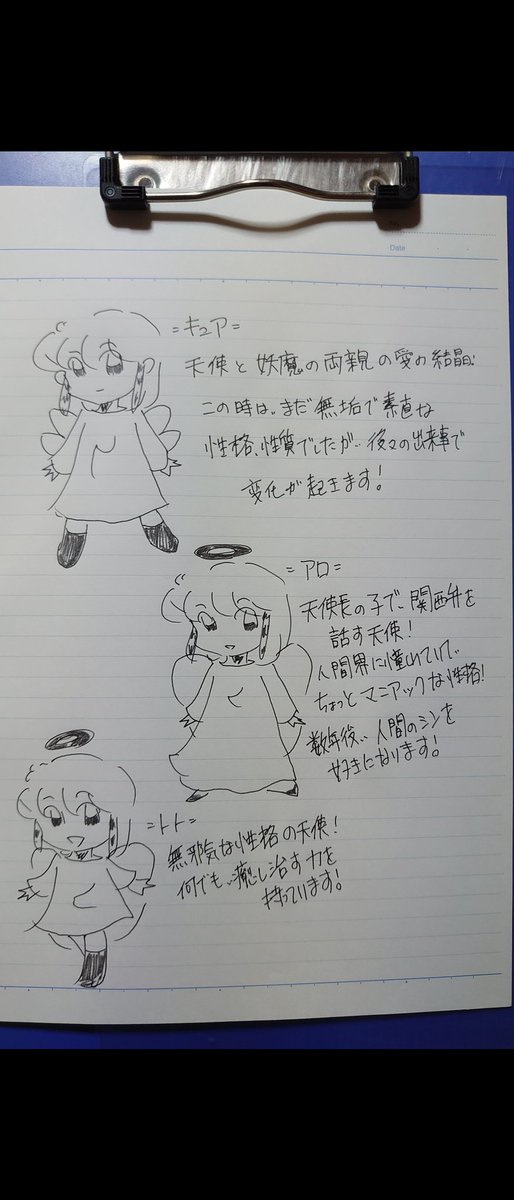 Date
=キュア=
天使と妖魔の両親の愛の結晶!
この時は、まだ無垢で素直な
性格、性質でしたが、後々の出来事で
変化が起きます!
=アロ=
天使長の子で、関西弁を
話す天使!
人間界に憧れていて、
ちょっとマニアックな性格!
数年後、人間のシンを
好きになります!
=トト=
無邪気な性格の天使!
何でも、癒し治す力を
持っています!